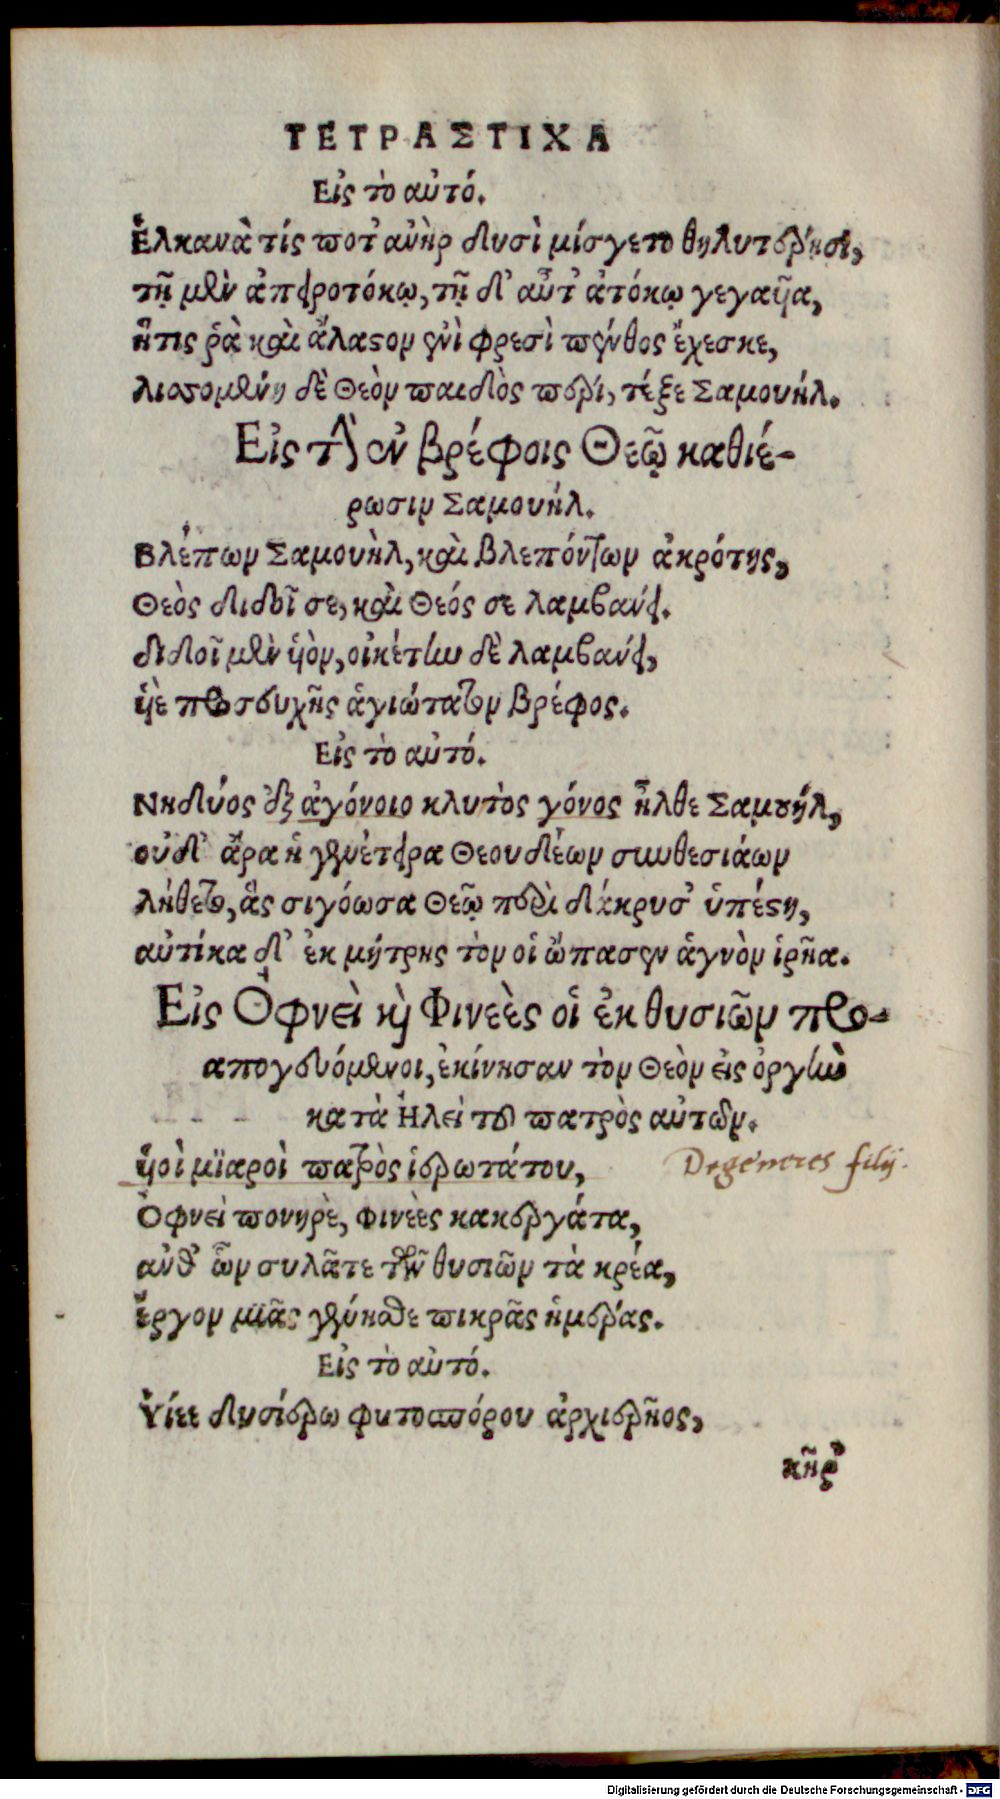 ΤΕΤΡΑΣΤΙΧΑ
Εἰς τὸ αὐτό.
Ἐλκανὰ τίς ποτ' ἀνὴρ δυσὶ μίσγετο θηλυτέρῃσι,
τῇ μὲν ἀπειροτόκῳ, τῇ δ' αὖτ' ἀτόκῳ γεγαυῖα,
ἥτις ῥὰ καὶ ἄλαστον ἐνὶ φρεσὶ πένθος ἔχεσκε,
λισσομένη δὲ Θεὸν παιδὸς πέρι, τέξε Σαμουήλ.
Εἰς τὴν ἐν βρέφοις Θεῷ καθιέ-
ρωσιν Σαμουήλ.
Βλέπων Σαμουὴλ, καὶ βλεπόντων ἀκρότης,
Θεὸς διδοῖ σε, καὶ Θεός σε λαμβάνει.
διδοῖ μὲν υἱὸν, οἰκέτην δὲ λαμβάνει,
υἱὲ προσευχῆς ἁγιώτατον βρέφος.
Εἰς τὸ αὐτό.
Νηδύος ἐξ ἀγόνοιο κλυτὸς γόνος ἦλθε Σαμουήλ,
οὐδ' ἄρα ἡ γενέτειρα Θεουδέων συνθεσιάων
λήθετο, ἃς σιγόωσα Θεῷ περὶ δάκρυσ' ὑπέστη,
αὐτίκα δ' ἐκ μήτρης τόν οἱ ὤπασεν ἁγνὸν ἱρῆα.
Εἰς Ὀφνεὶ καὶ Φινεὲς οἳ ἐκ θυσιῶν προ-
απογευόμενοι, ἐκίνησαν τὸν Θεὸν εἰς ὀργὴν
κατὰ Ἠλεὶ τοῦ πατρὸς αὐτῶν.
υἱοὶ μϊαροὶ πατρὸς ἱερωτάτου,
Degeneres filij.
Ὀφνεὶ πονηρὲ, Φινεὲς κακεργάτα,
ἀνθ' ὧν συλᾶτε τῶν θυσιῶν τὰ κρέα,
ἔργον μιᾶς γένησθε πικρᾶς ἡμέρας.
Εἰς τὸ αὐτό.
Υἱέε δυσίερω φυτοσπόρου ἀρχιερῆος,
κῆρ'
Digitalisierung gefördert durch die Deutsche Forschungsgemeinschaft - DFG